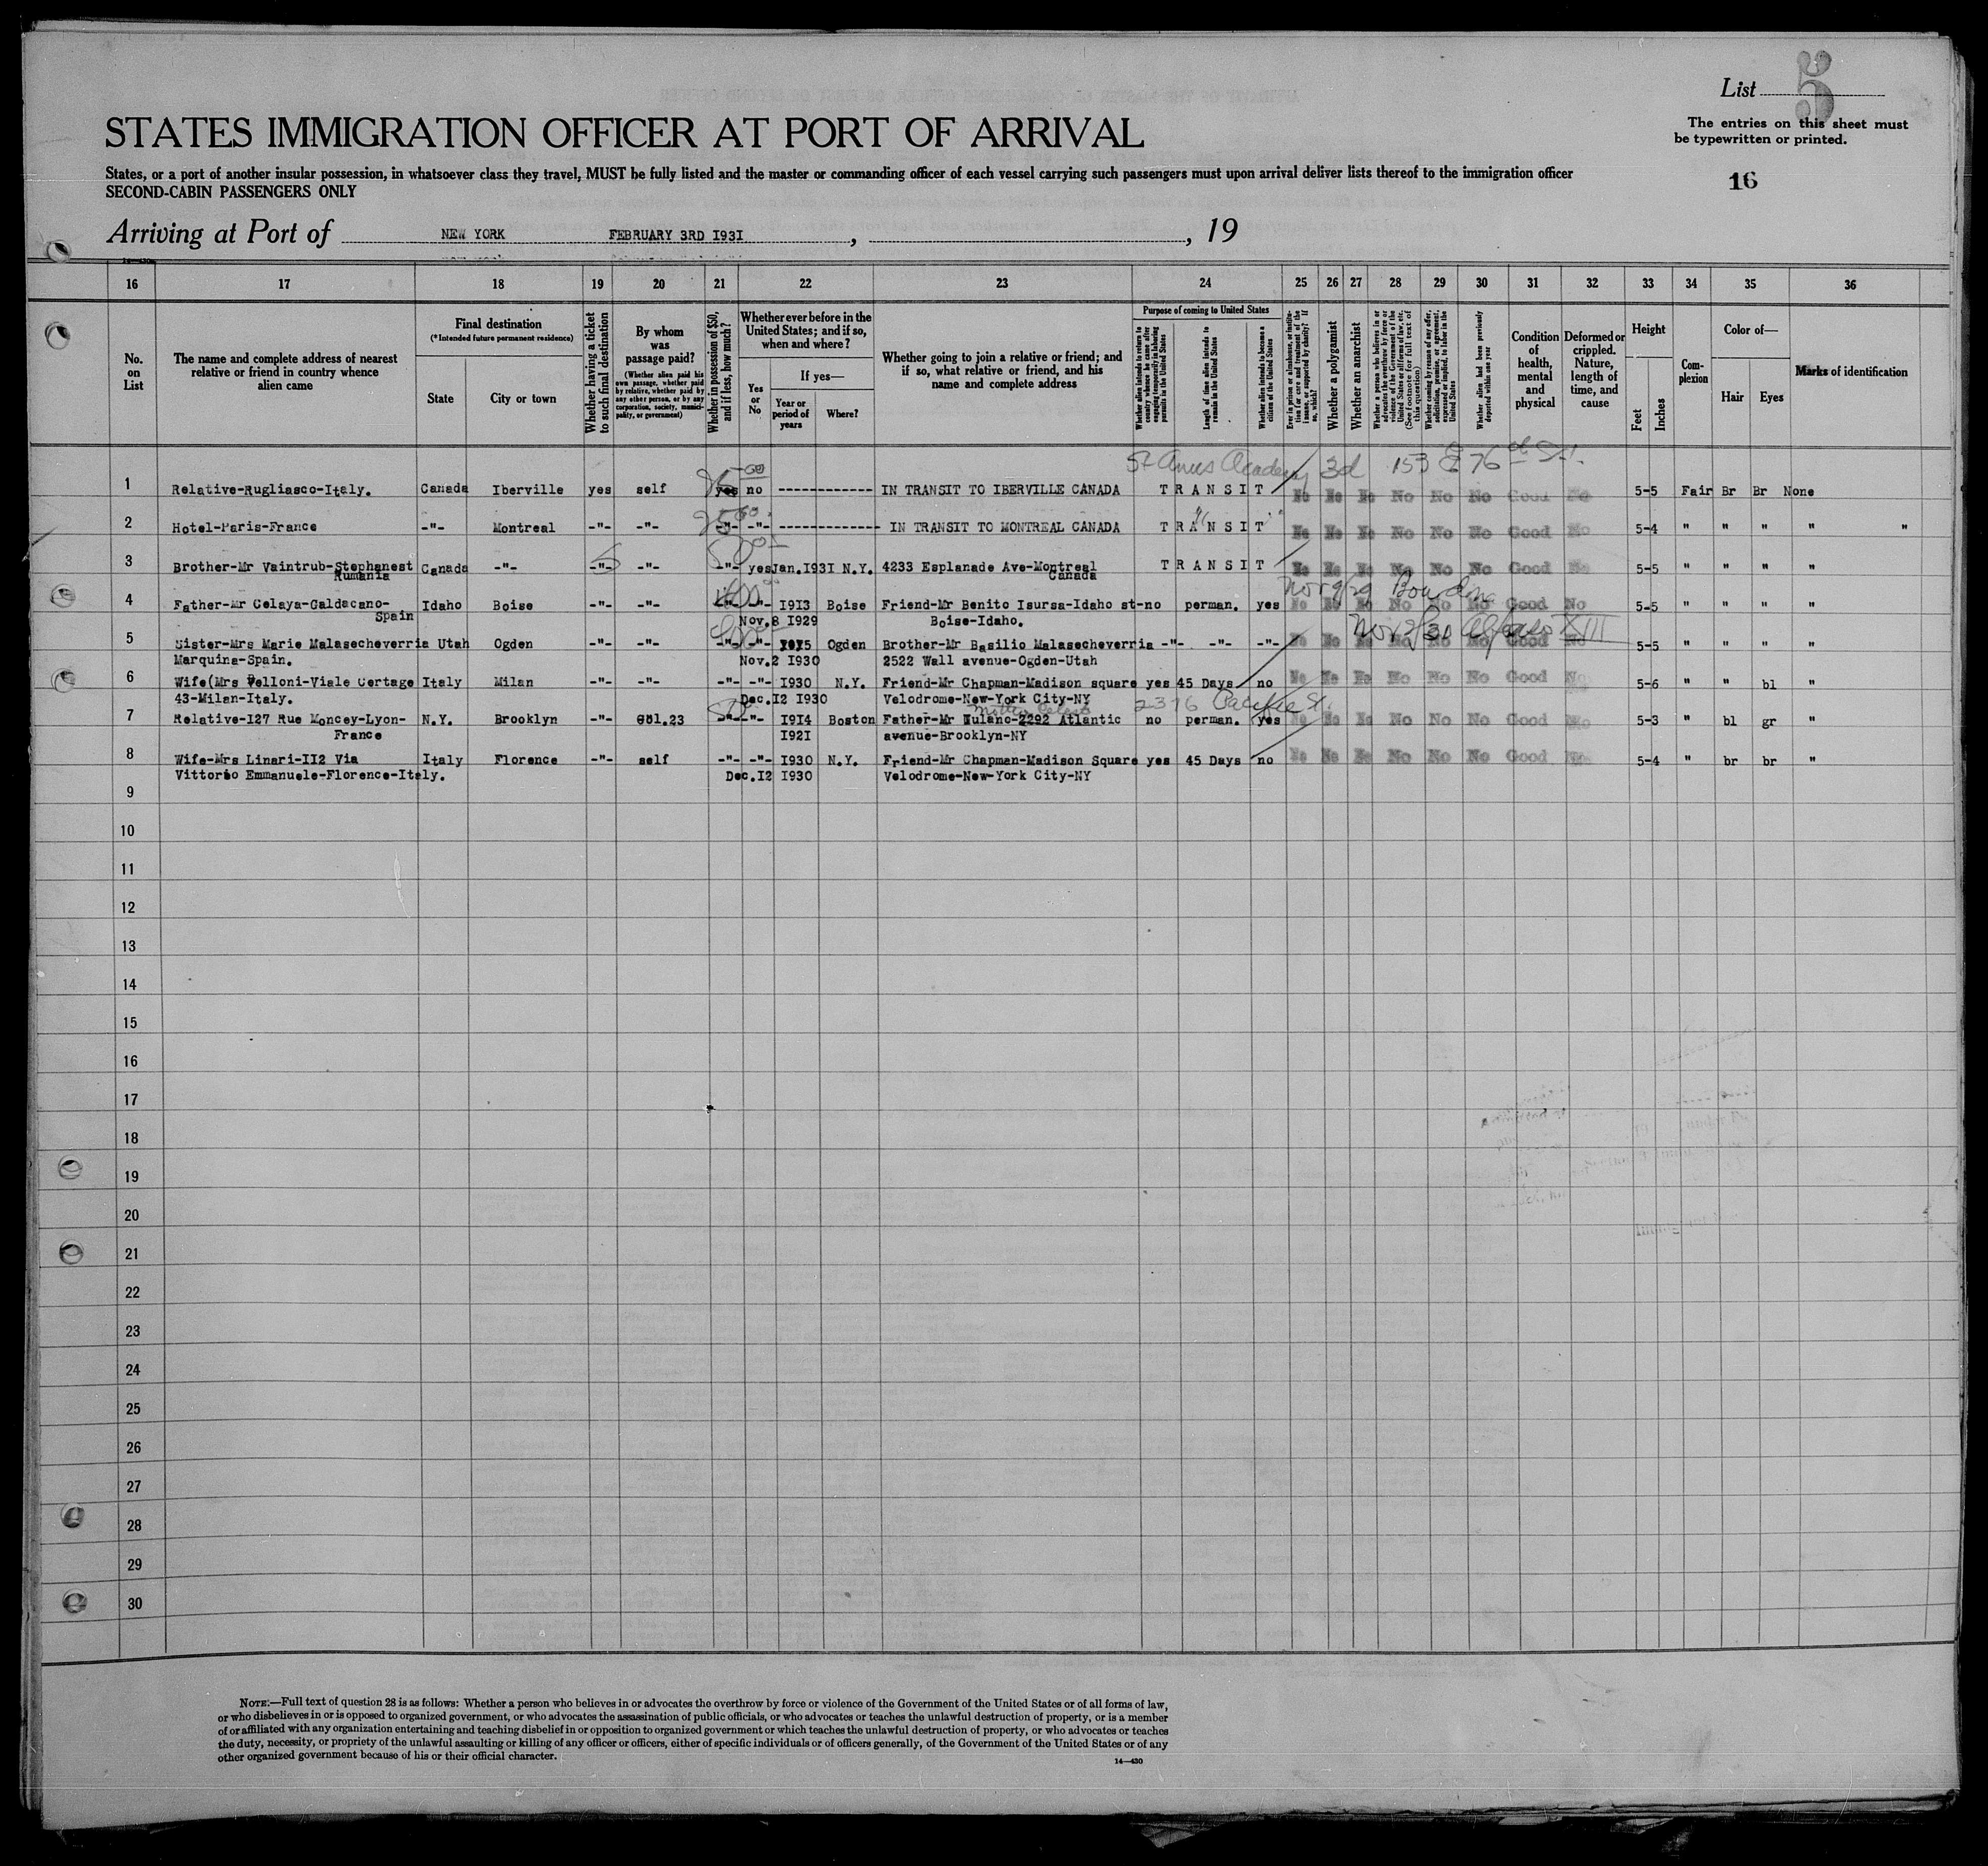 List 5
The entries on this sheet must
be typewritten or printed.
16
STATES IMMIGRATION OFFICER AT PORT OF ARRIVAL
States, or a port of another insular possession, in whatsoever class they travel, MUST be fully listed and the master or commanding officer of each vessel carrying such passengers must upon arrival deliver lists thereof to the immigration officer
SECOND-CABIN PASSENGERS ONLY
Arriving at Port of NEW YORK FEBRUARY 3RD I93I , , 19
16 17 18 19 20 21 22 23 24 25 26 27 28 29 30 31 32 33 34 35 36
No. on List
The name and complete address of nearest relative or friend in country whence alien came
Final destination
(*Intended future permanent residence)
State
City or town
Whether having a ticket to such final destination
By whom was passage paid?
(Whether alien paid his own passage, whether paid by relative, whether paid by any other person, or by any corporation, society, municipality, or government)
Whether in possession of $50, and if less, how much?
Whether ever before in the United States; and if so, when and where?
Yes or No
If yes—
Year or period of years
Where?
Whether going to join a relative or friend; and if so, what relative or friend, and his name and complete address
Purpose of coming to United States
Whether alien intends to return to country whence he came after engaging temporarily in laboring pursuits in the United States
Length of time alien intends to remain in the United States
Whether alien intends to become a citizen of the United States
Ever in prison or almshouse, or institution for care and treatment of the insane, or supported by charity? If so, which?
Whether a polygamist
Whether an anarchist
Whether a person who believes in or advocates the overthrow by force or violence of the Government of the United States or all forms of law, etc. (See footnote for full text of this question)
Whether coming by reason of any offer, solicitation, promise, or agreement, expressed or implied, to labor in the United States
Whether alien had been previously deported within one year
Condition of health, mental and physical
Deformed or crippled. Nature, length of time, and cause
Height
Feet
Inches
Complexion
Color of—
Hair
Eyes
Marks of identification
St Anns Academy 3d 153 E 76th St.
1 Relative-Rugliasco-Italy. Canada Iberville yes self yes no ------------ IN TRANSIT TO IBERVILLE CANADA T R A N S I T No No No No No No Good No 5-5 Fair Br Br None
2 Hotel-Paris-France -"- Montreal -"- -"- -"- -"- -------------- IN TRANSIT TO MONTREAL CANADA T R A N S I T No No No No No No Good No 5-4 " " " " "
3 Brother-Mr Vaintrub-Stephanest Canada -"- -"- -"- -"- yes Jan.I93I N.Y. 4233 Esplanade Ave-Montreal T R A N S I T No No No No No No Good No 5-5 " " " "
Rumania Canada
Nov 9/29 Bourdona
4 Father-Mr Celaya-Galdacano- Idaho Boise -"- -"- -"- -"- I9I3 Boise Friend-Mr Benito Isursa-Idaho st- no perman. yes No No No No No No Good No 5-5 " " " "
Spain Nov.8 I929 Boise-Idaho.
Nov 2/30 Alfonso XIII
5 Sister-Mrs Marie Malasecheverria Utah Ogden -"- -"- -"- -"- I9I5 Ogden Brother-Mr Basilio Malasecheverria -"- -"- -"- No No No No No No Good No 5-5 " " " "
Marquina-Spain. Nov.2 I930 2522 Wall avenue-Ogden-Utah
6 Wife(Mrs Velloni-Viale Certage Italy Milan -"- -"- -"- -"- I930 N.Y. Friend-Mr Chapman-Madison square yes 45 Days no No No No No No No Good No 5-6 " " bl "
43-Milan-Italy. Dec.I2 I930 Velodrome-New-York City-NY
Mother 2376 Pacific St.
7 Relative-I27 Rue Moncey-Lyon- N.Y. Brooklyn -"- Col.23 -"- -"- I9I4 Boston Father-Mr Mulano-2292 Atlantic no perman. yes No No No No No No Good No 5-3 " bl gr "
France I92I avenue-Brooklyn-NY
8 Wife-Mrs Linari-II2 Via Italy Florence -"- self -"- -"- I930 N.Y. Friend-Mr Chapman-Madison Square yes 45 Days no No No No No No No Good No 5-4 " br br "
Vittorio Emmanuele-Florence-Italy. Dec.I2 I930 Velodrome-New-York City-NY
9
10
11
12
13
14
15
16
17
18
19
20
21
22
23
24
25
26
27
28
29
30
NOTE.—Full text of question 28 is as follows: Whether a person who believes in or advocates the overthrow by force or violence of the Government of the United States or of all forms of law,
or who disbelieves in or is opposed to organized government, or who advocates the assassination of public officials, or who advocates or teaches the unlawful destruction of property, or is a member
of or affiliated with any organization entertaining and teaching disbelief in or opposition to organized government or which teaches the unlawful destruction of property, or who advocates or teaches
the duty, necessity, or propriety of the unlawful assaulting or killing of any officer or officers, either of specific individuals or of officers generally, of the Government of the United States or of any
other organized government because of his or their official character.
14—430